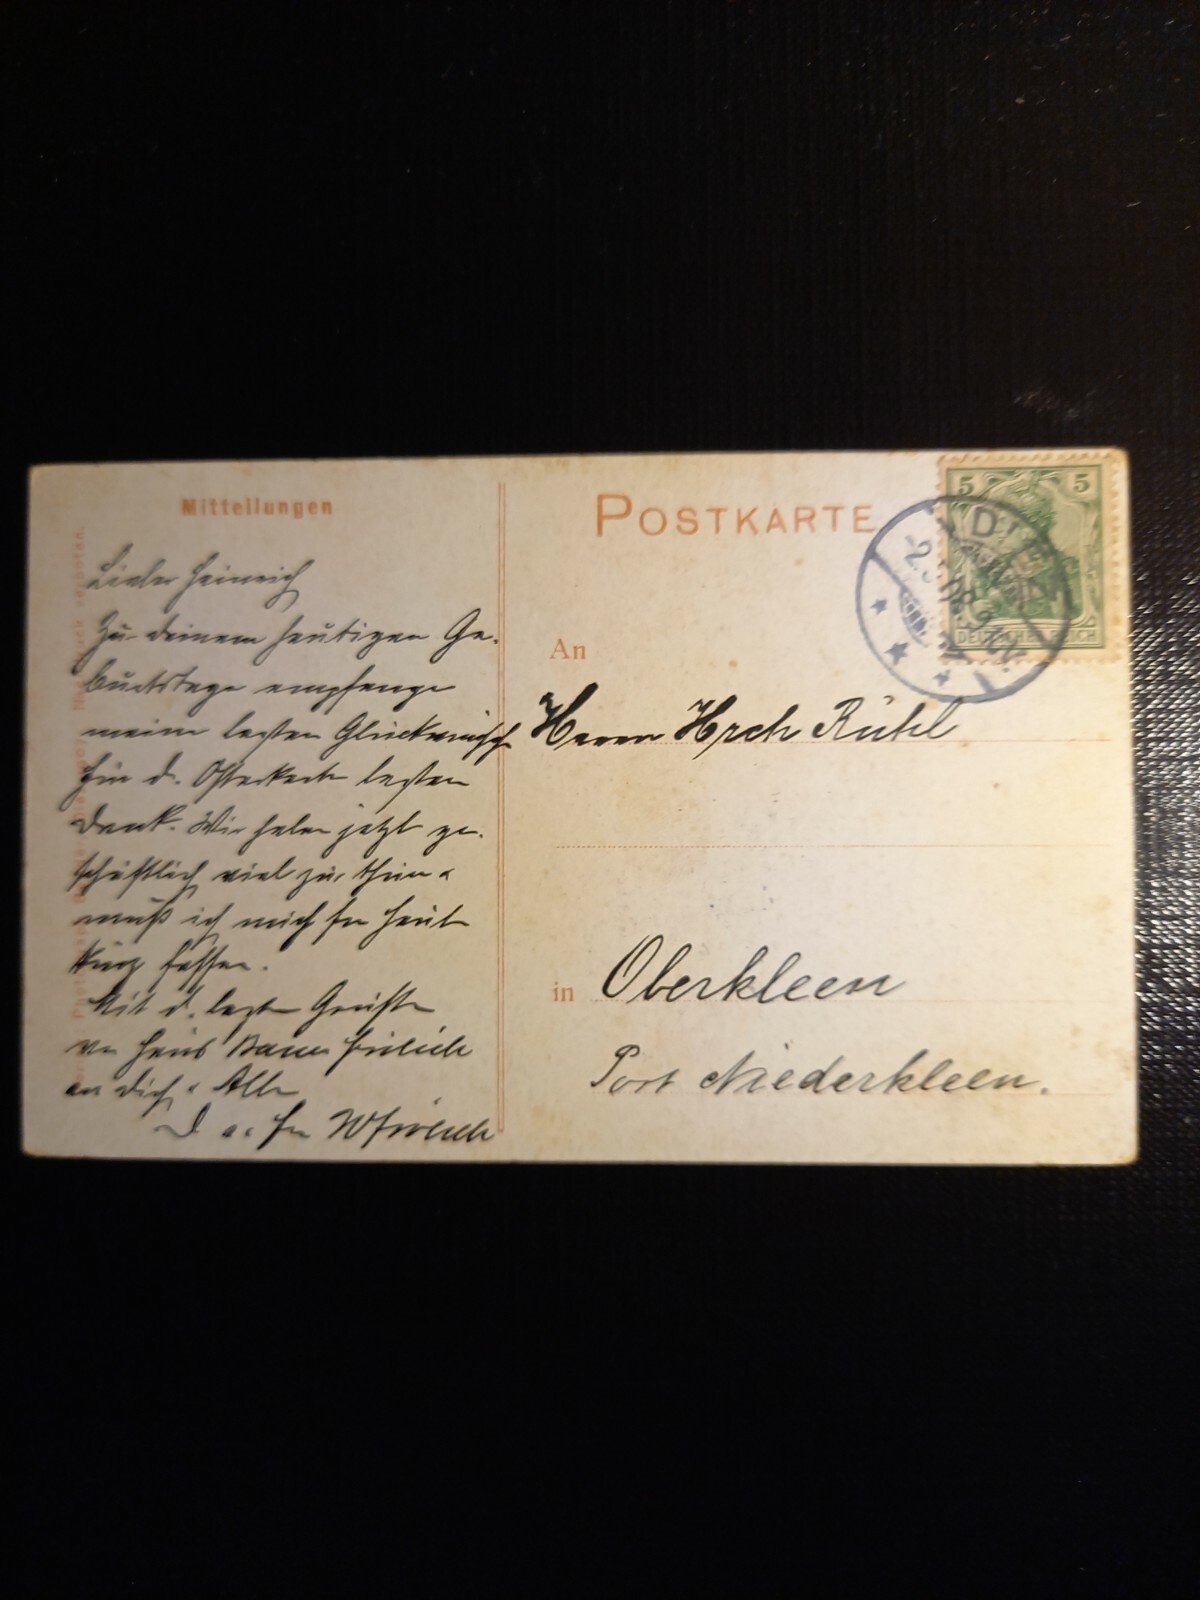 Mitteilungen
Lieber Heinrich
Zu deinem heutigen Ge-
burtstage empfange
meine besten Glückwünsche
Für d. Osterkarte besten
Dank. Wir haben jetzt ge-
schäftlich viel zu thun &
muß ich mich für heute
kurz fassen.
Mit d. besten Grüßen
von Haus
an Dich & Alle
D
POSTKARTE
5 5
DEUTSCHES REICH
An
Herrn Hrch Rühl
in Oberkleen
Post Niederkleen.